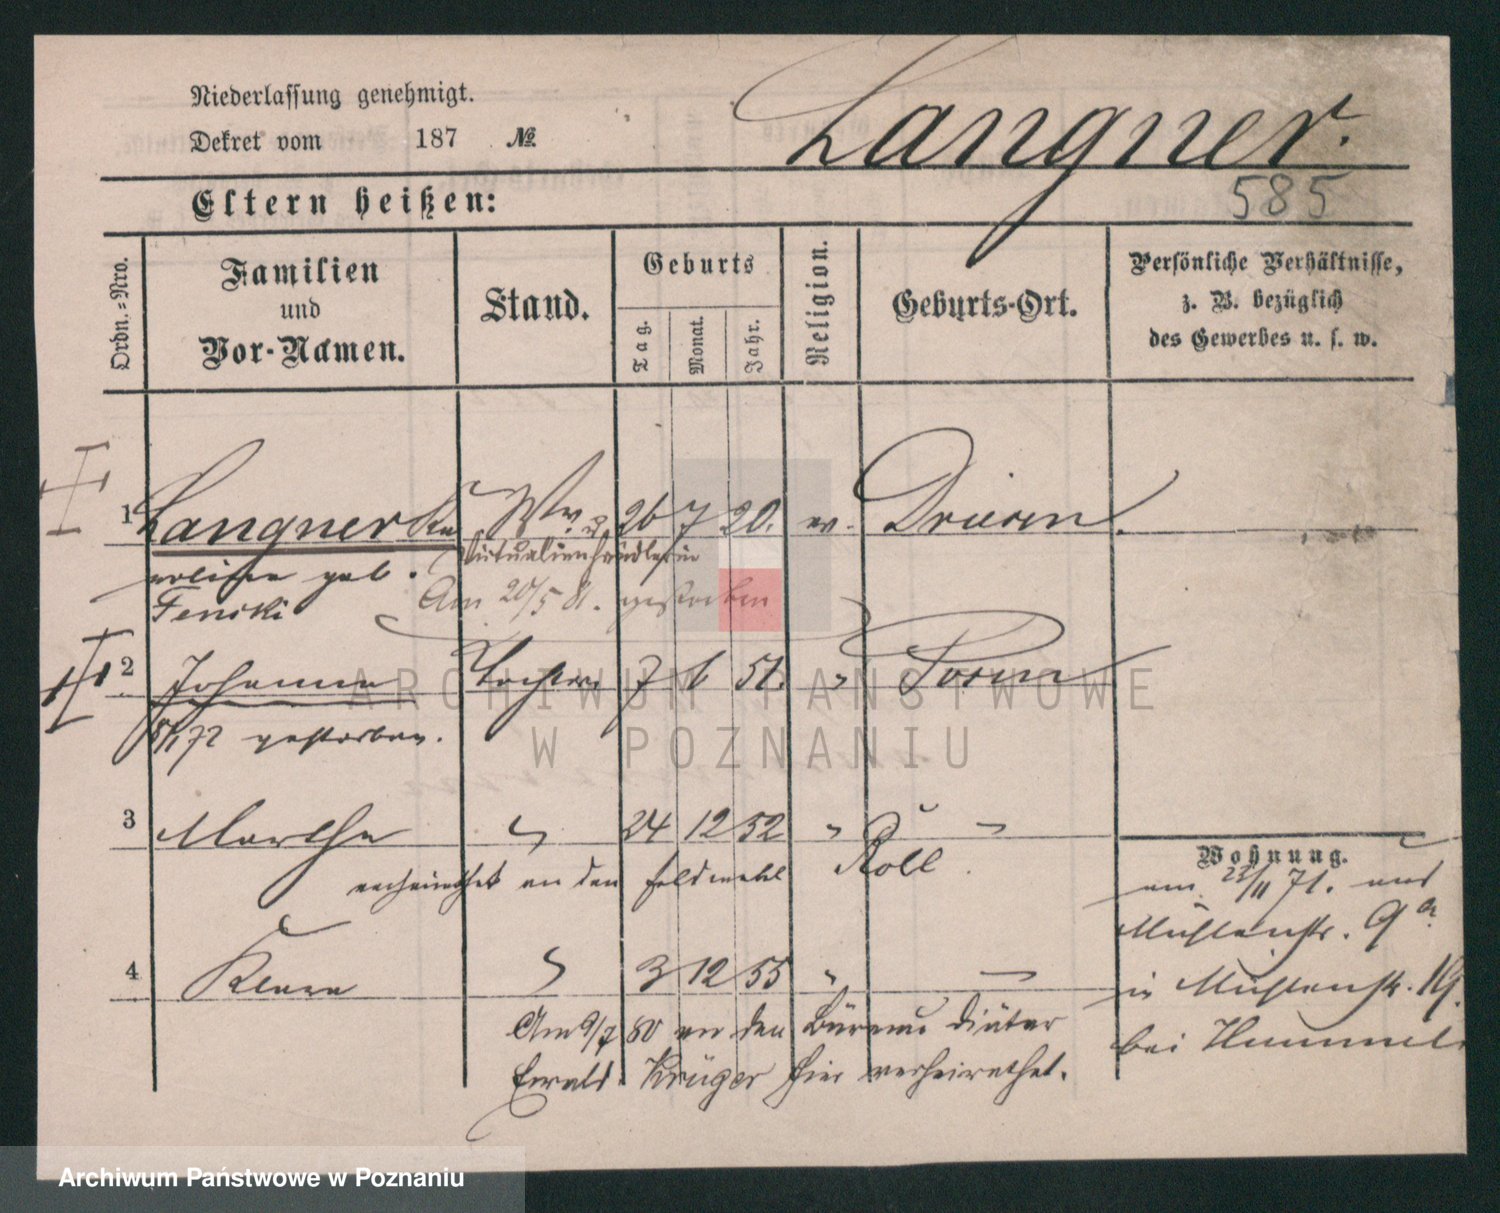 Niederlassung genehmigt.
Dekret vom 187 №
Langner.
585
Eltern heißen:
Ordn.-Nro.
Familien
und
Vor-Namen.
Stand.
Geburts
Tag.
Monat.
Jahr.
Religion.
Geburts-Ort.
Persönliche Verhältnisse,
z. B. bezüglich
des Gewerbes u. s. w.
1 Langner Ka Ww. u. 26 7 20. ev. Driesen.
roline geb. Victualienhändlerin
Fenski Am 20/5 81. gestorben
2 Johanna Tochter 7 6 51. " Posen
72 gestorben.
3 Martha " 24 12 52 " "
verheirathet an den Feldwebel Roll.
4 Klara " 3 12 55 " "
Am 9/7 80 an den Büreau Diätar
Ewald Krüger hier verheirathet.
Wohnung.
am 23/11 71. aus
Mühlenstr. 9a.
in Mühlenstr. 19.
bei Hummel
ARCHIWUM PAŃSTWOWE
W POZNANIU
Archiwum Państwowe w Poznaniu